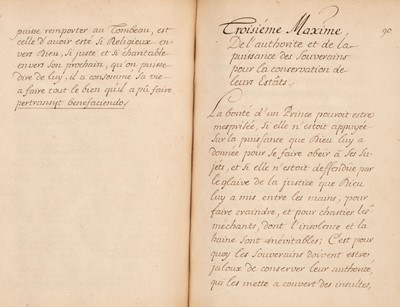 puisse remporter au Tombeau, est
celle d'avoir esté si Religieux en-
vers Dieu, si juste et si charitable
envers son prochain, qu'on puisse
dire de luy, il a consommé sa vie
a faire tout le bien qu'il a pû faire
pertransyt benefaciendo,
90
Troisiéme Maxime,
De l'authorité et de la
puissance des Souverains
pour la conservation de
leurs Estâts.
La bonté d'un Prince pouroit estre
mesprisée, si elle n'estoit appuyée
sur la puissance que Dieu luy a
donnée pour se faire obeir à ses Su-
jéts, et si elle n'estoit deffendüe par
le glaive de la justice que Dieu
luy a mis entre les mains, pour
faire craindre, et pour chastier les
méchants, dont l'insolence et la
haine sont inévitables; C'est pour
quoy les Souverains doivent estre
jaloux de conserver leur authorité,
qui les mette a couvert des insultes,